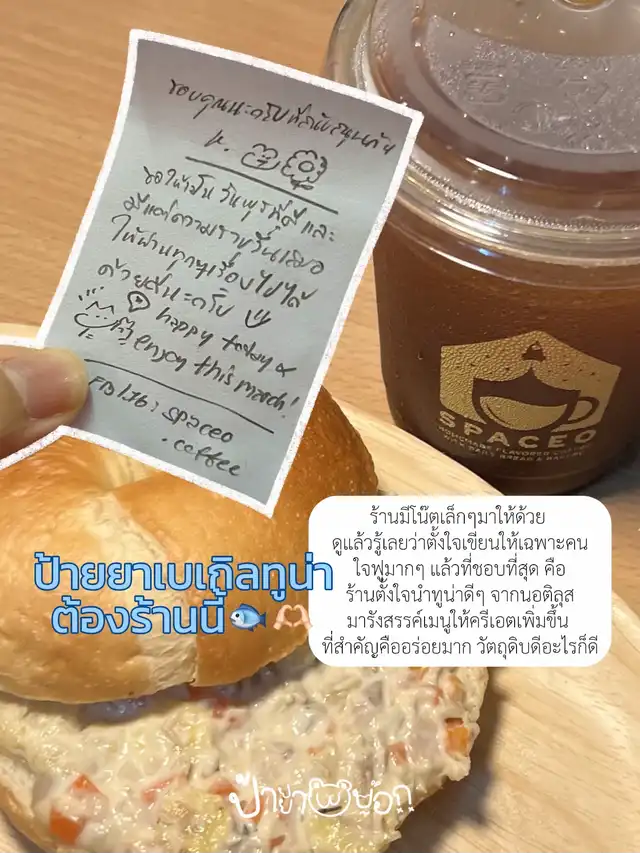 ขอบคุณนะครับที่สนับสนุนกัน
k.
ขอให้เป็นวันพุธที่ดีและ
มีแต่ความราบรื่นเสมอ
ให้ผ่านทุกๆเรื่องไปได้
ด้วยดีนะครับ
happy today &
enjoy this march!
FB / IG : spaceo
.coffee
SPACEO
HOMEMADE FLAVORED
BREAD & BAKERY
ร้านมีโน๊ตเล็กๆมาให้ด้วย
ดูแล้วรู้เลยว่าตั้งใจเขียนให้เฉพาะคน
ใจฟูมากๆ แล้วที่ชอบที่สุด คือ
ร้านตั้งใจนำทูน่าดีๆ จากนอติลุส
มารังสรรค์เมนูให้ครีเอตเพิ่มขึ้น
ที่สำคัญคืออร่อยมาก วัตถุดิบดีอะไรก็ดี
ป้ายยาเบเกิลทูน่า
ต้องร้านนี้
ป้ายาบอก